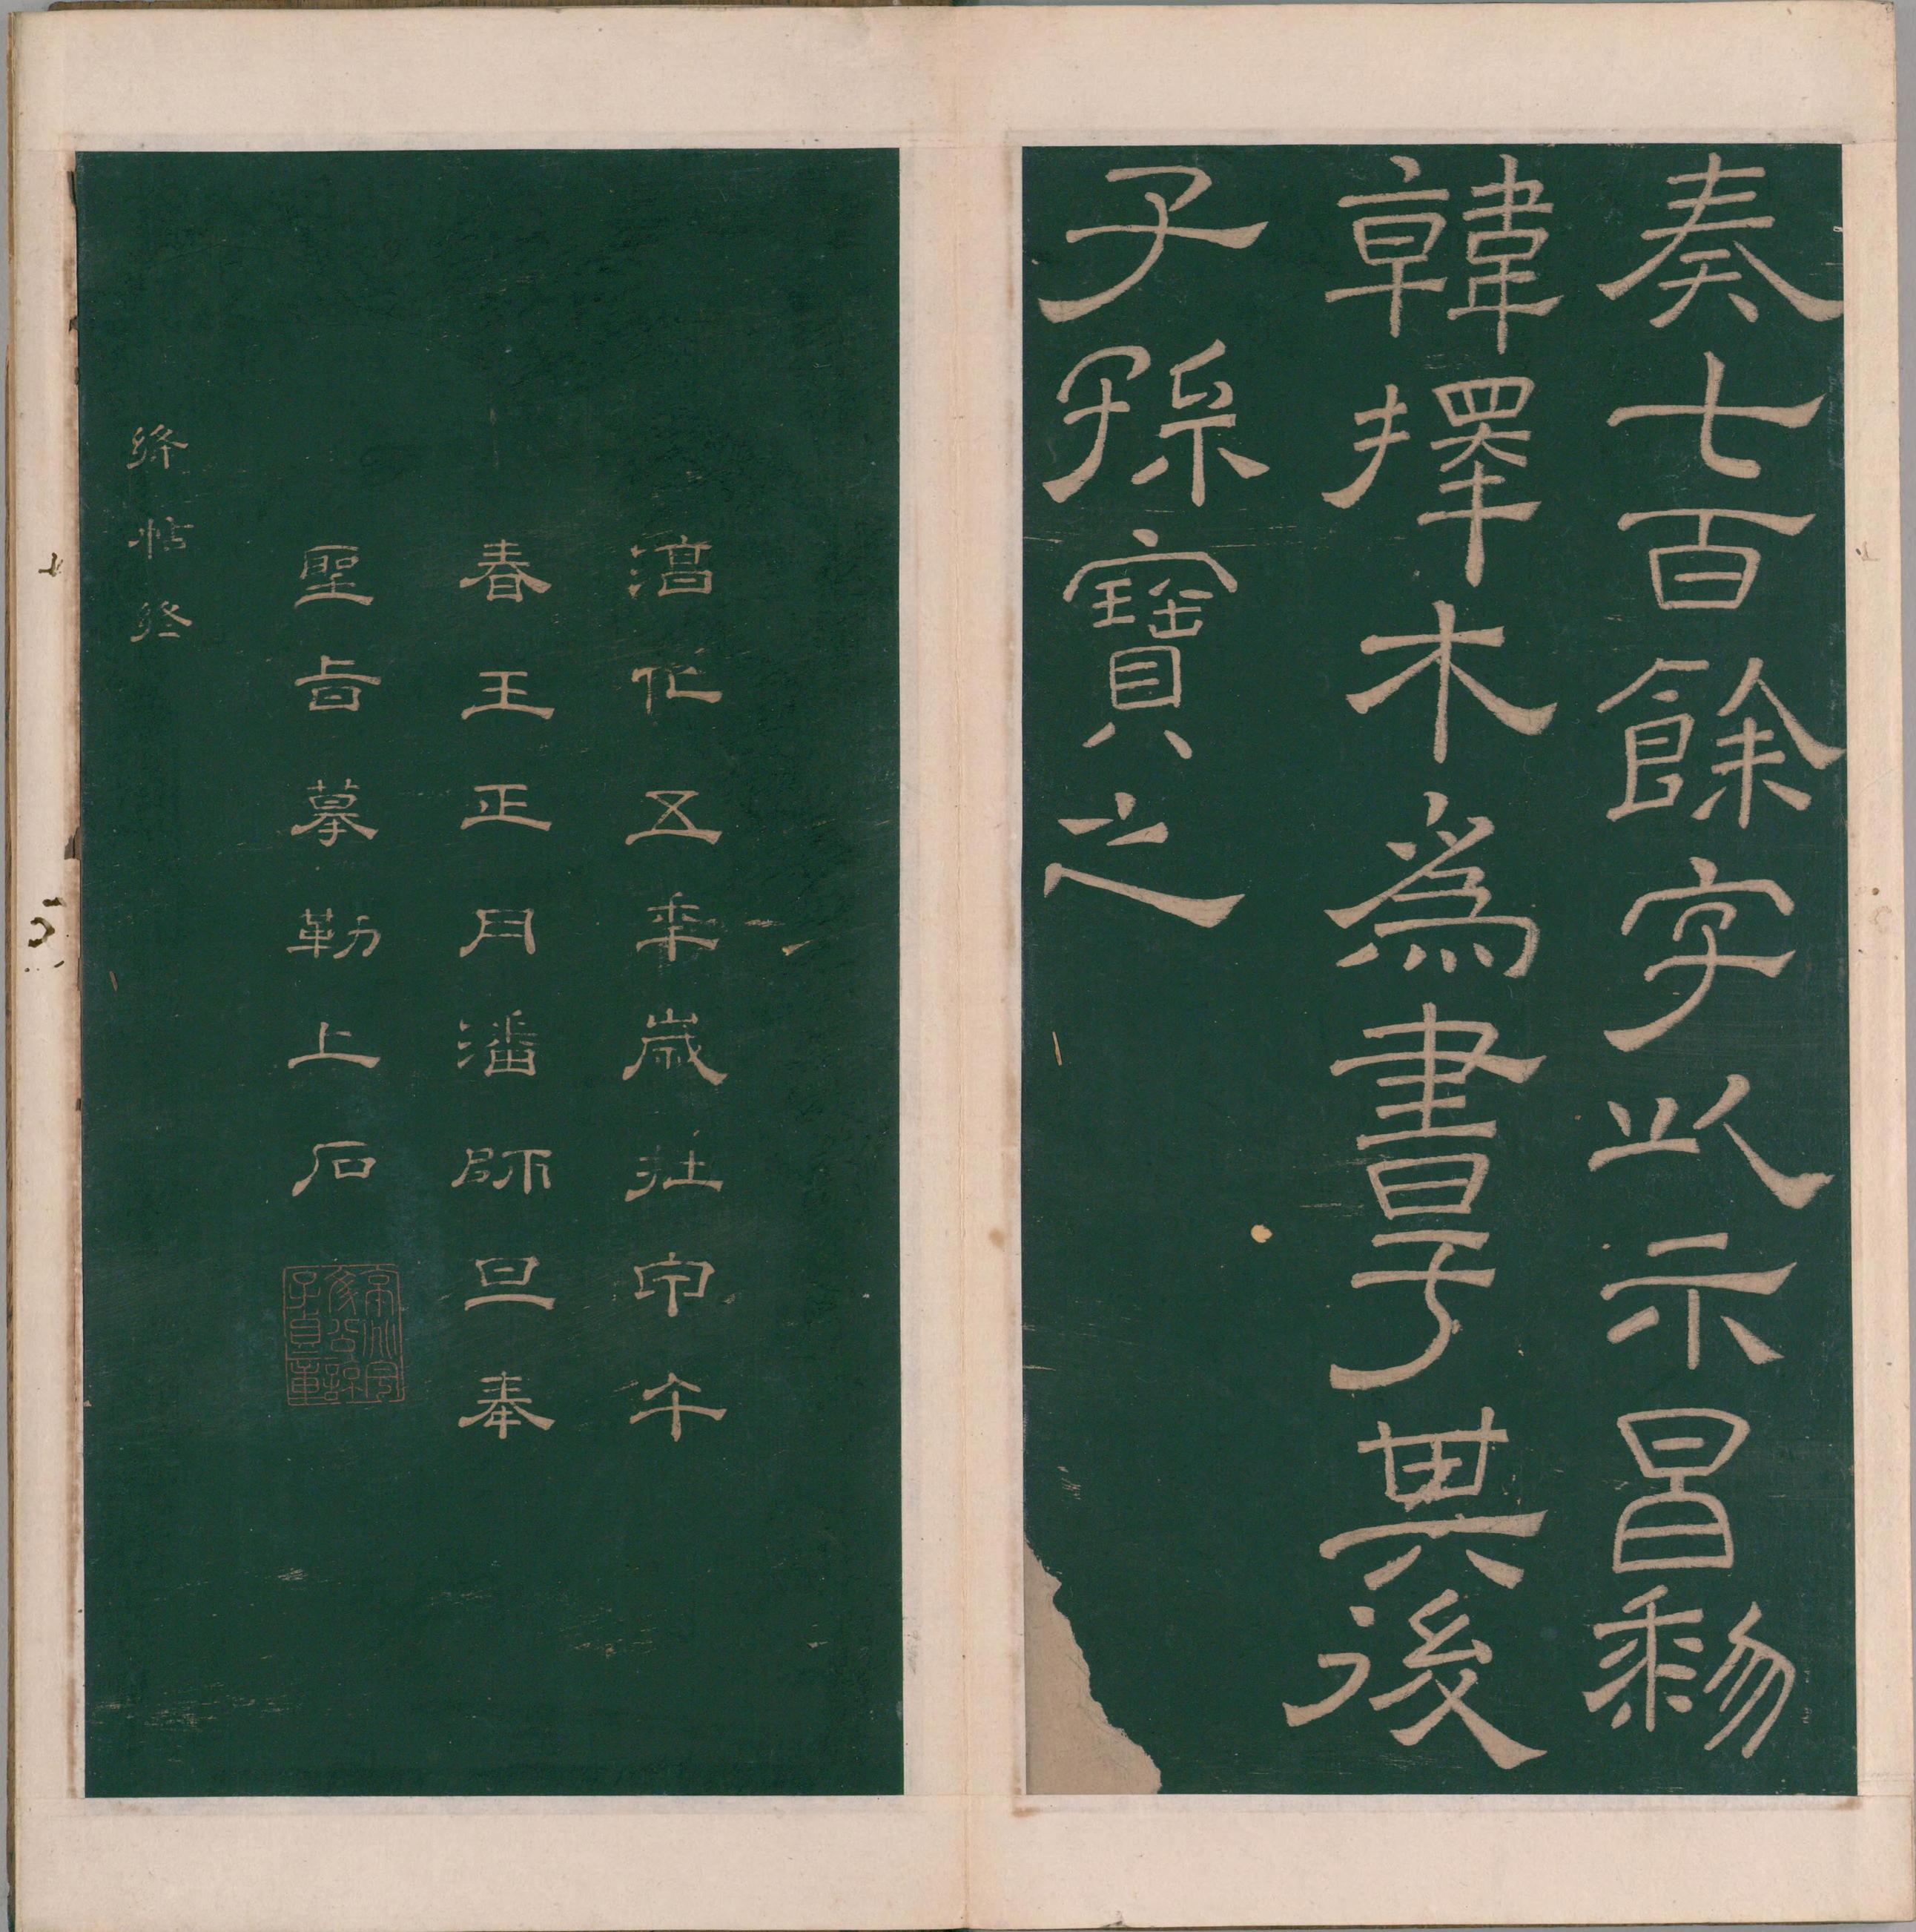 奏七百餘字以示昌黎
韓擇木為書予其後
子孫寶之
淳化五年歲在甲午
春王正月潘師旦奉
聖旨摹勒上石
絳帖終